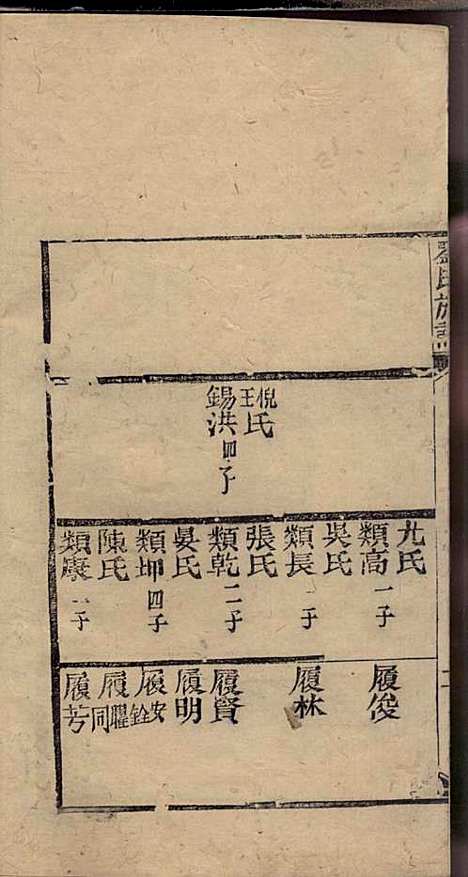 氏族譜
倪
王
氏
錫洪四子
尤氏
類高一子
吳氏
類長一子
張氏
類乾二子
晏氏
類坤四子
陳氏
類康二子
二
履俊
履林
履賢
履明
履安
銓
履曜
同
履芳